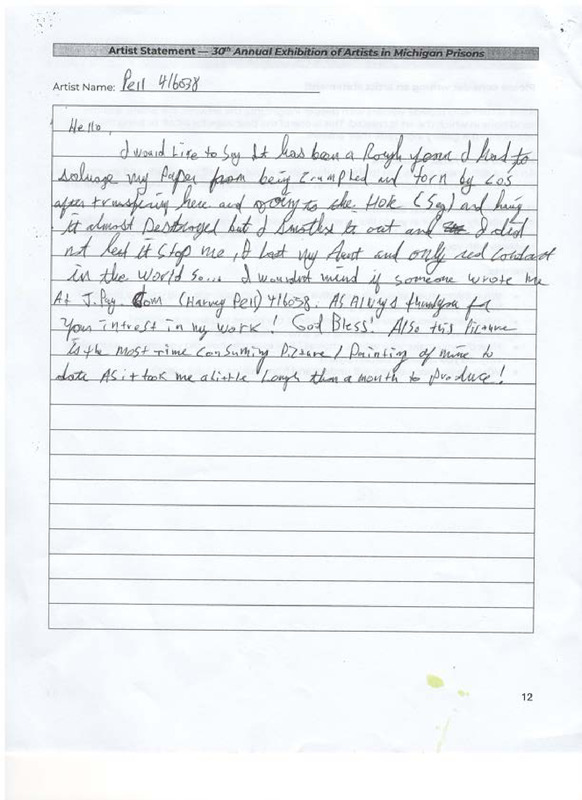 Artist Statement — 30th Annual Exhibition of Artists in Michigan Prisons
Artist Name: Pell 416038
Hello,
I would Like to Say It has been a Rough year I had to
salvage my Paper from being Crumpled and torn by COS
after transfering here and going to the Hole (Seg) and having
it almost Destroyed but I smothed it out and I did
not let it stop me, I lost my Aunt and only real Contact
in the World So... I wouldnt mind if someone wrote me
At J.Pay. Com (Harvey Pell) 416038. As Always thankyou for
Your intrest in my work! God Bless! Also this Picture
is the most Time Consuming Picture/Painting of mine to
date As it took me alittle Longer than a month to Produce!
12